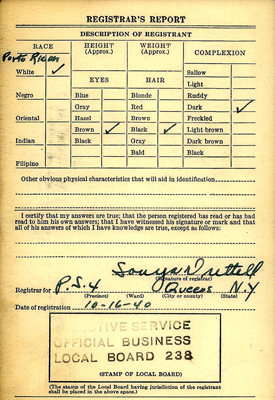 REGISTRAR'S REPORT
DESCRIPTION OF REGISTRANT
RACE HEIGHT (Approx.) WEIGHT (Approx.) COMPLEXION
Porto Rican
White ✓ Sallow
EYES HAIR Light
Negro Blue Blonde Ruddy
Gray Red Dark ✓
Oriental Hazel Brown Freckled
Brown ✓ Black ✓ Light brown
Indian Black Gray Dark brown
Bald Black
Filipino
Other obvious physical characteristics that will aid in identification
I certify that my answers are true; that the person registered has read or has had
read to him his own answers; that I have witnessed his signature or mark and that
all of his answers of which I have knowledge are true, except as follows:
(Signature of registrar)
Registrar for P.S. 4 Queens N.Y
(Precinct) (Ward) (City or county) (State)
Date of registration 10-16-40
SERVICE
OFFICIAL BUSINESS
LOCAL BOARD 238
(STAMP OF LOCAL BOARD)
(The stamp of the Local Board having jurisdiction of the registrant
shall be placed in the above space.)